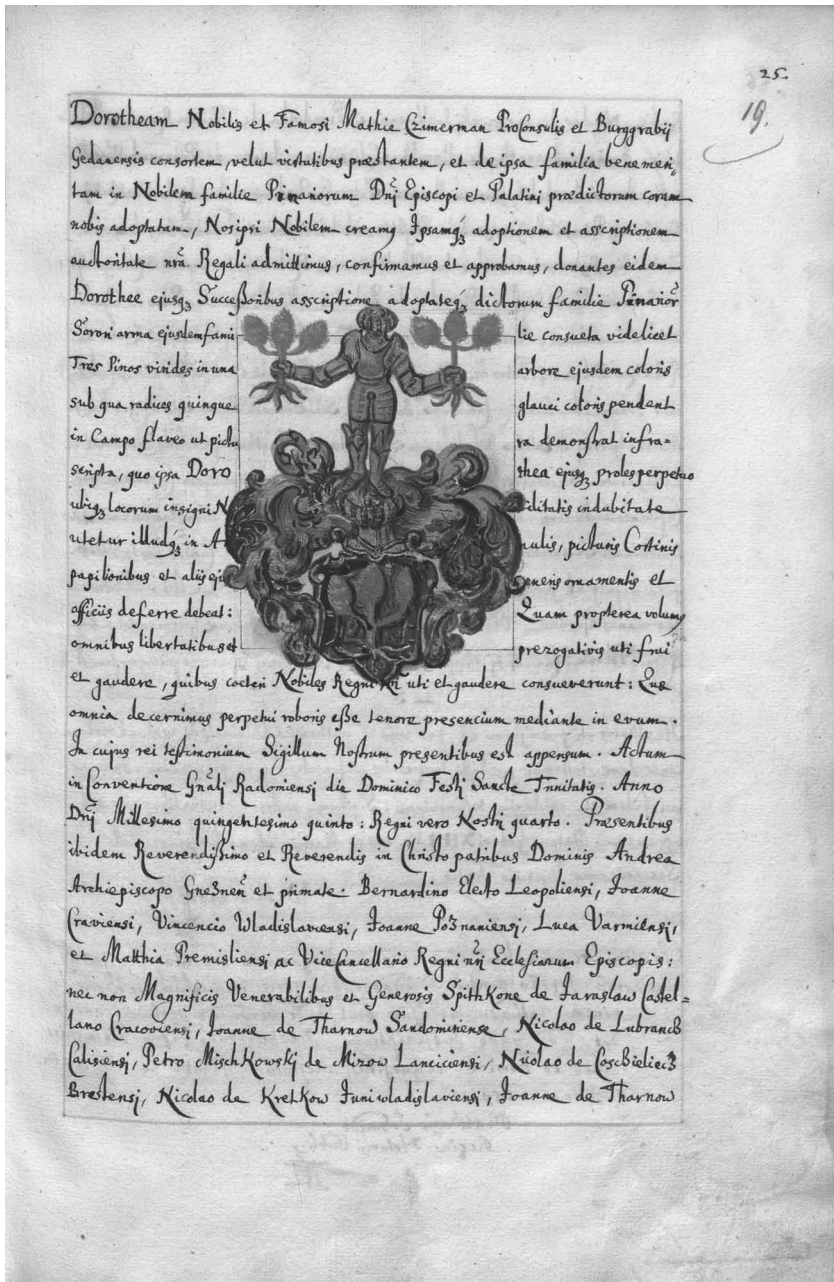 25.
19.
Dorotheam Nobilis et Famosi Mathie Czimerman ProConsulis et Burggrabij
Gedanensis consortem, velut virtutibus præstantem, et de ipsa familia benemeri,
tam in Nobilem familie Pinaniorum Dnj Episcopi et Palatini prædictorum coram
nobis adoptatam, Nos ipsi Nobilem creamq Ipsamq3 adoptionem et asscriptionem
auctoritate nrâ Regali admittimus, confirmamus et approbamus, donantes eidem
Dorothee ejusq3 Successoribus asscriptione adoptateq3 dictorum familie Pinanior
Sorori arma ejusdem fami lie consueta videlicet
Tres Pinos virides in una arbore ejusdem coloris
sub qua radices quinque glauci coloris pendent
in Campo flaveo ut pictu ra demonstrat infra=
scripta, quo ipsa Doro thea ejusq3 proles perpetuo
ubiq3 locorum insigni N ilitatis indubitate
utetur illudq3 in A nulis, picturis Cortinis
papilionibus et aliis eju generis ornamentis et
officiis deferre debeat: Quam propterea volumq
omnibus libertatibus et prerogativis uti frui
et gaudere, quibus cæteri Nobiles Regni nri uti et gaudere consueverunt: Que
omnia decernimus perpetui roboris esse tenore presencium mediante in evum.
In cujus rei testimonium Sigillum Nostrum presentibus est appensum. Actum
in Conventione Gnâlj Radomiensj die Dominico Festj Sancte Trinitatis. Anno
Dnj Millesimo quingentesimo quinto: Regni vero Nostri quarto. Præsentibus
ibidem Reverendissimo et Reverendis in Christo patribus Dominis Andrea
Archiepiscopo Gne3nen et primate. Bernardino Electo Leopoliensi, Joanne
Craviensi, Vincencio Wladislaviensi, Joanne Po3naniensj, Luca Varmiensj,
et Matthia Premisliensj ac ViceCancellario Regni nrj Ecclesiarum Episcopis:
nec non Magnificis Venerabilibus et Generosis Spithkone de Jaraslaw Castel=
lano Cracoviensj, Joanne de Tharnow Sandomiriense, Nicolao de Lubranch
Calisiensj, Petro Mischkowskj de Mizow Lanciciensj, Nicolao de Coschieliec3
Brestensj, Nicolao de Kretkow Juniwladislaviensj, Joanne de Tharnow